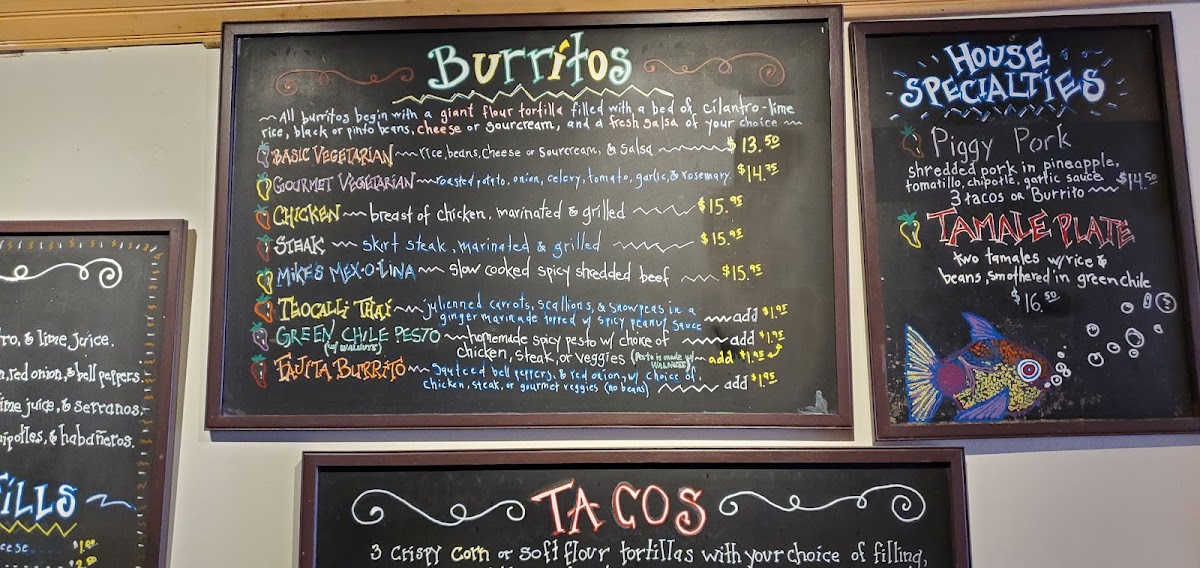 Burritos
All burritos begin with a giant flour tortilla filled with a bed of cilantro-lime
rice, black or pinto beans, cheese or sourcream, and a fresh salsa of your choice
BASIC VEGETARIAN rice, beans, cheese or sourcream, & salsa $13.50
GOURMET VEGETARIAN roasted potato, onion, celery, tomato, garlic, & rosemary $14.75
CHICKEN breast of chicken, marinated & grilled $15.95
STEAK skirt steak, marinated & grilled $15.95
MIKE'S MEX-O-LINA slow cooked spicy shredded beef $15.95
TEOCALLI THAI julienned carrots, scallions, & snowpeas in a
ginger marinade topped w/ spicy peanut sauce add $1.95
GREEN CHILE PESTO homemade spicy pesto w/ choice of add $1.95
(w/ WALNUTS) chicken, steak, or veggies (Pesto is made w/ WALNUTS) add $1.95
FAJITA BURRITO sauteed bell peppers, & red onion, w/ choice of
chicken, steak, or gourmet veggies (no beans) add $1.95
HOUSE
SPECIALTIES
Piggy Pork
shredded pork in pineapple,
tomatillo, chipotle, garlic sauce $14.50
3 tacos or Burrito
TAMALE PLATE
two tamales w/ rice &
beans, smothered in green chile
$16.50
TACOS
3 crispy corn or soft flour tortillas with your choice of filling,
& lime juice.
red onion, & bell peppers.
lime juice, & serranos.
& habañeros.
$1.00